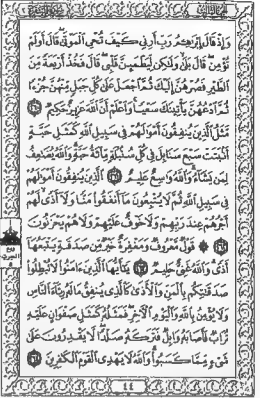 وَإِذْ قَالَ إِبْرَاهِيمُ رَبِّ أَرِنِي كَيْفَ تُحْيِي الْمَوْتَىٰ قَالَ أَوَلَمْ
تُؤْمِن قَالَ بَلَىٰ وَلَٰكِن لِّيَطْمَئِنَّ قَلْبِي قَالَ فَخُذْ أَرْبَعَةً مِّنَ
الطَّيْرِ فَصُرْهُنَّ إِلَيْكَ ثُمَّ اجْعَلْ عَلَىٰ كُلِّ جَبَلٍ مِّنْهُنَّ جُزْءًا
ثُمَّ ادْعُهُنَّ يَأْتِينَكَ سَعْيًا وَاعْلَمْ أَنَّ اللَّهَ عَزِيزٌ حَكِيمٌ ٢٦٠
مَّثَلُ الَّذِينَ يُنفِقُونَ أَمْوَالَهُمْ فِي سَبِيلِ اللَّهِ كَمَثَلِ حَبَّةٍ
أَنبَتَتْ سَبْعَ سَنَابِلَ فِي كُلِّ سُنبُلَةٍ مِّائَةُ حَبَّةٍ وَاللَّهُ يُضَاعِفُ
لِمَن يَشَاءُ وَاللَّهُ وَاسِعٌ عَلِيمٌ ٢٦١ الَّذِينَ يُنفِقُونَ أَمْوَالَهُمْ
فِي سَبِيلِ اللَّهِ ثُمَّ لَا يُتْبِعُونَ مَا أَنفَقُوا مَنًّا وَلَا أَذًى لَّهُمْ
أَجْرُهُمْ عِندَ رَبِّهِمْ وَلَا خَوْفٌ عَلَيْهِمْ وَلَا هُمْ يَحْزَنُونَ
٢٦٢ قَوْلٌ مَّعْرُوفٌ وَمَغْفِرَةٌ خَيْرٌ مِّن صَدَقَةٍ يَتْبَعُهَا
أَذًى وَاللَّهُ غَنِيٌّ حَلِيمٌ ٢٦٣ يَا أَيُّهَا الَّذِينَ آمَنُوا لَا تُبْطِلُوا
صَدَقَاتِكُم بِالْمَنِّ وَالْأَذَىٰ كَالَّذِي يُنفِقُ مَالَهُ رِئَاءَ النَّاسِ
وَلَا يُؤْمِنُ بِاللَّهِ وَالْيَوْمِ الْآخِرِ فَمَثَلُهُ كَمَثَلِ صَفْوَانٍ عَلَيْهِ
تُرَابٌ فَأَصَابَهُ وَابِلٌ فَتَرَكَهُ صَلْدًا لَّا يَقْدِرُونَ عَلَىٰ
شَيْءٍ مِّمَّا كَسَبُوا وَاللَّهُ لَا يَهْدِي الْقَوْمَ الْكَافِرِينَ ٢٦٤
٤٤